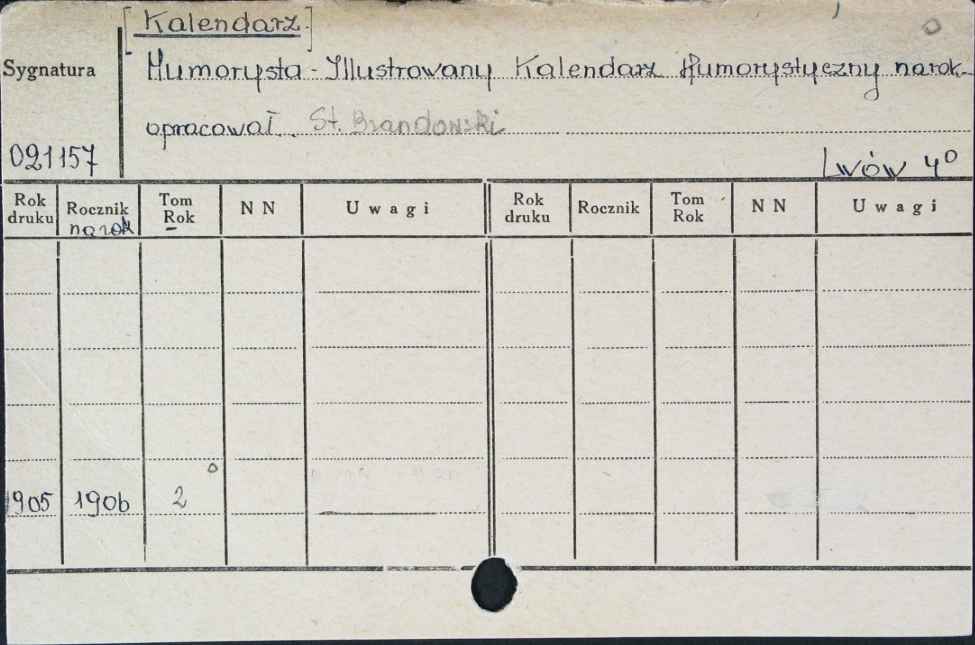 [Kalendarz.]
Sygnatura
Humorysta - Illustrowany Kalendarz Humorystyczny na rok-
opracował. St. Brandowski
021157
Lwów 4°
Rok druku Rocznik na rok Tom Rok N N Uwagi Rok druku Rocznik Tom Rok N N Uwagi
1905 1906 2